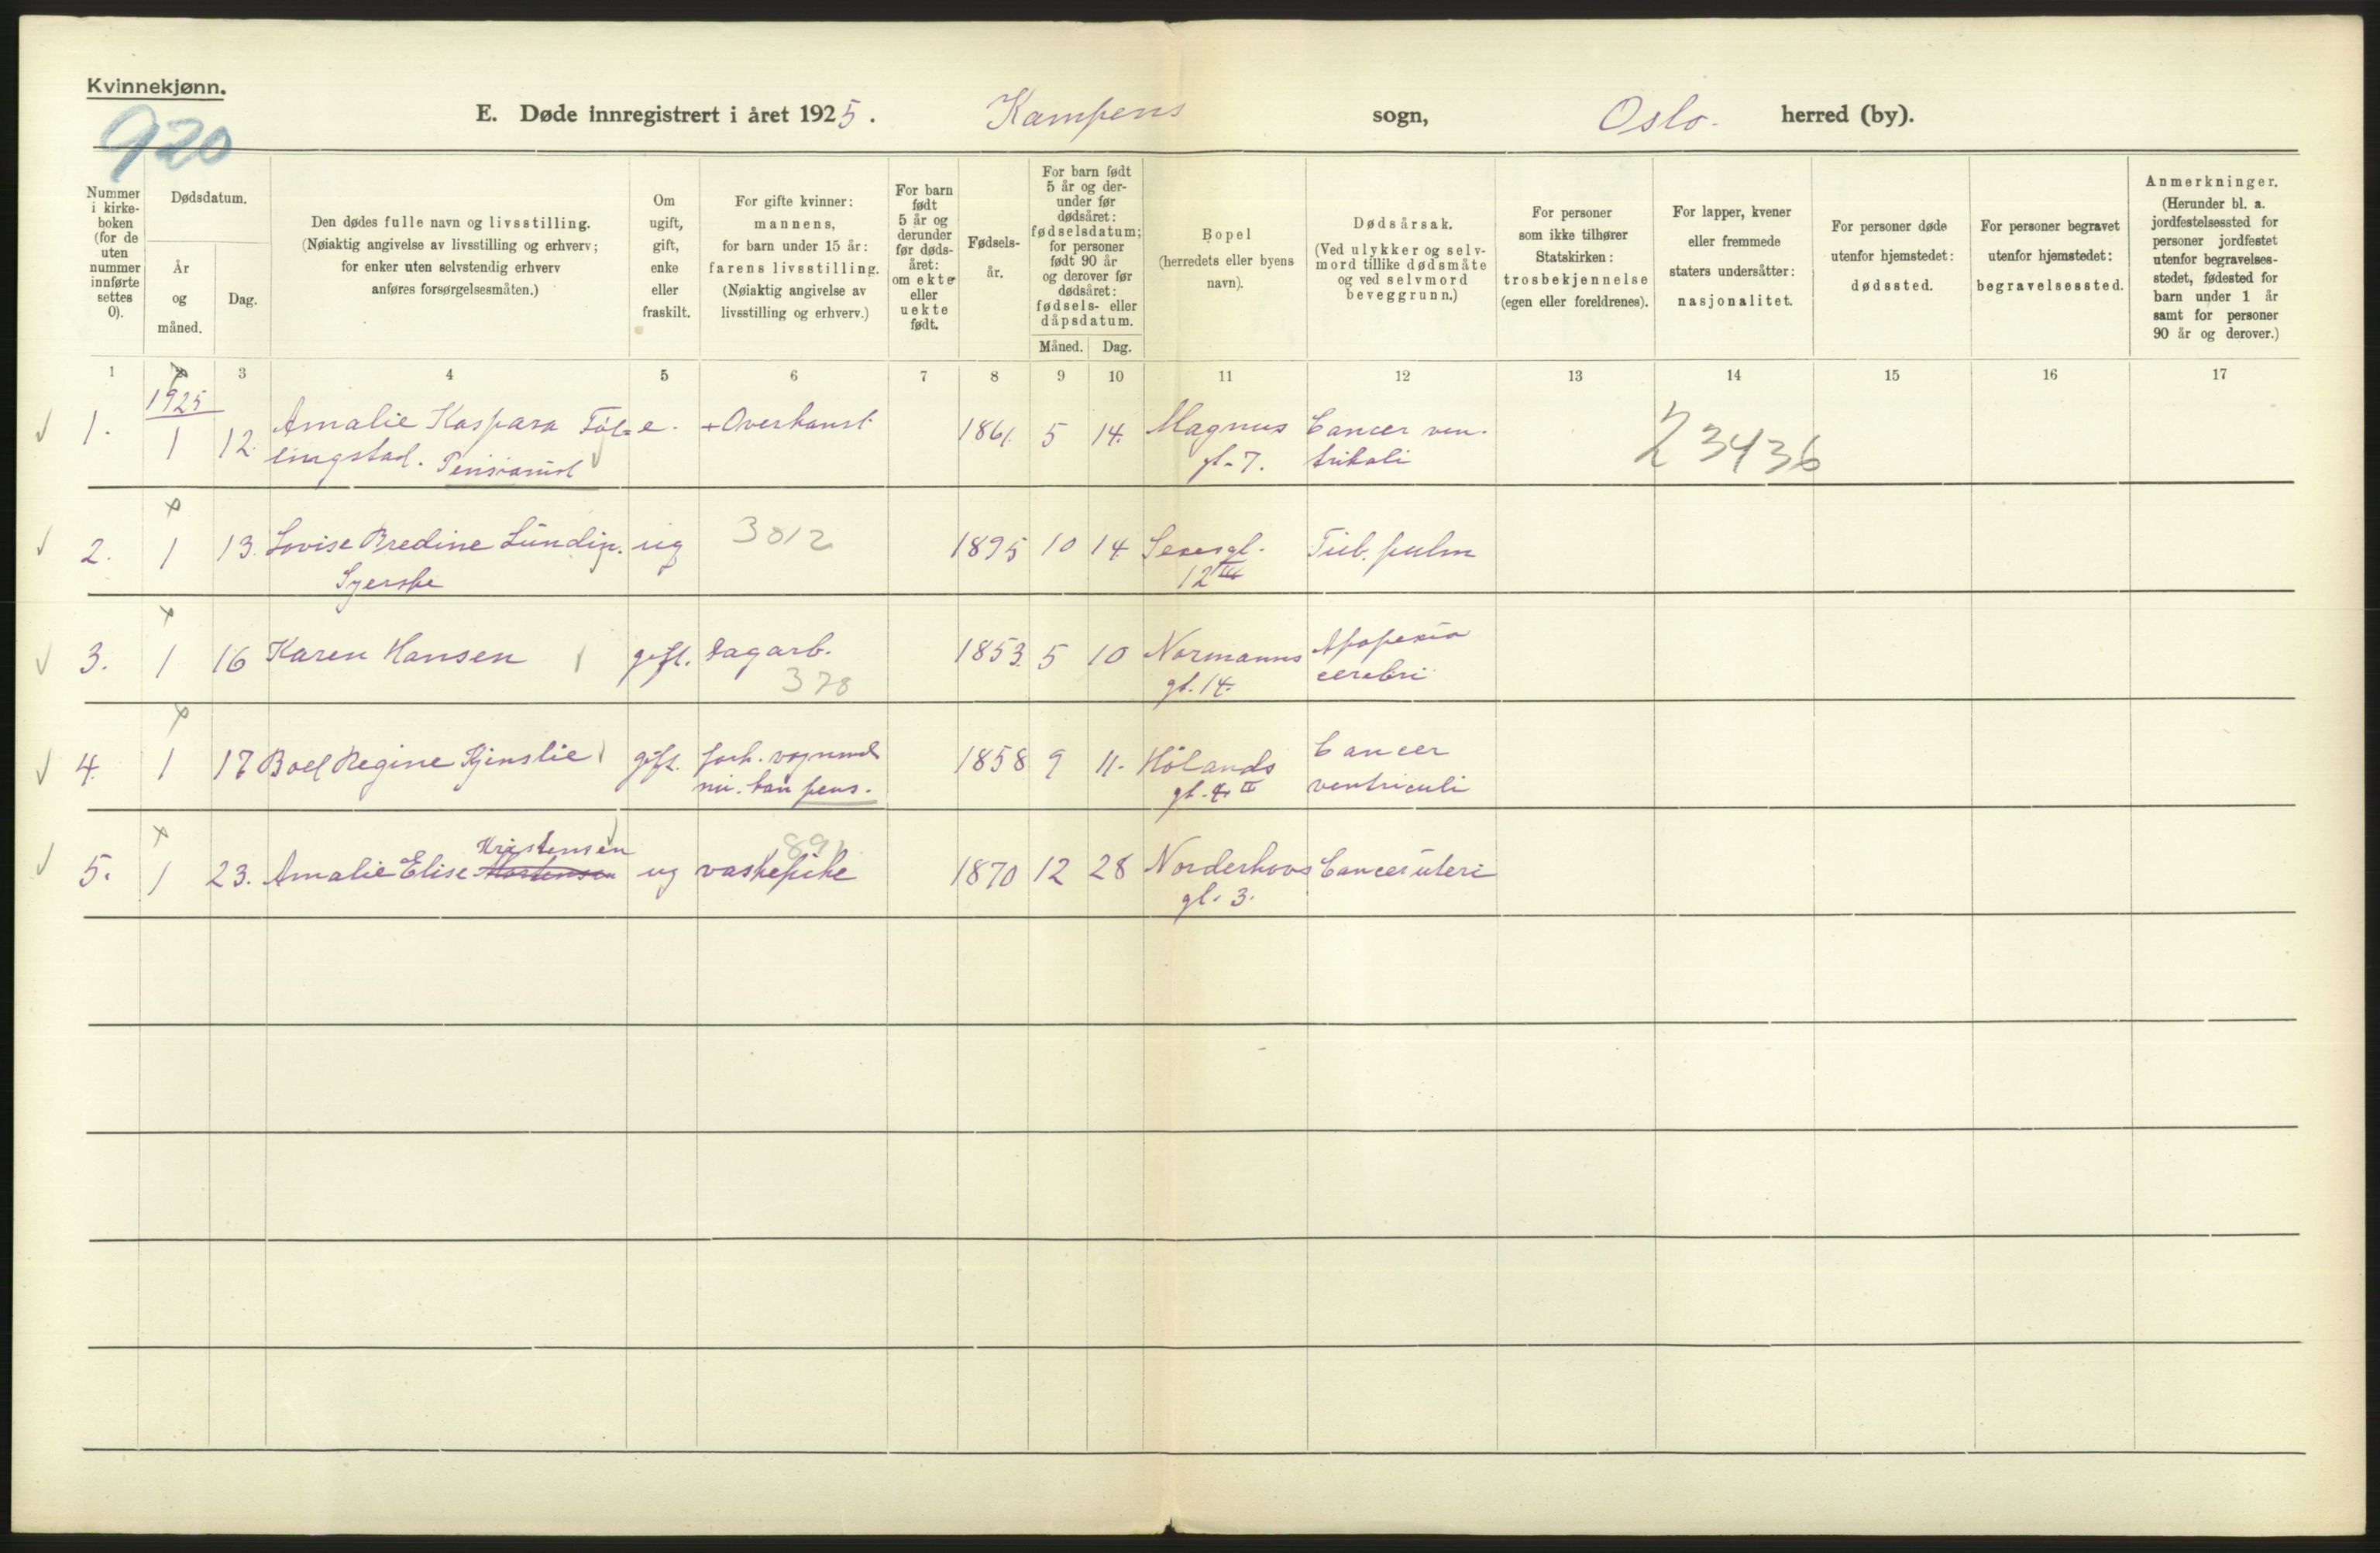 Kvinnekjønn.
920
E. Døde innregistrert i året 1925. Kampens sogn, Oslo. herred (by).
Nummer i kirkeboken (for de uten nummer innførte settes 0).
Dødsdatum.
År og måned.
Dag.
Den dødes fulle navn og livsstilling.
(Nøiaktig angivelse av livsstilling og erhverv;
for enker uten selvstendig erhverv
anføres forsørgelsesmåten.)
Om
ugift,
gift,
enke
eller
fraskilt.
For gifte kvinner:
mannens,
for barn under 15 år:
farens livsstilling.
(Nøiaktig angivelse av
livsstilling og erhverv.)
For barn
født
5 år og
derunder
før døds-
året:
om ekte
eller
uekte
født.
Fødsels-
år.
For barn født
5 år og der-
under før
dødsåret:
fødselsdatum;
for personer
født 90 år
og derover før
dødsåret:
fødsels- eller
dåpsdatum.
Måned. Dag.
Bopel
(herredets eller byens
navn).
Dødsårsak.
(Ved ulykker og selv-
mord tillike dødsmåte
og ved selvmord
beveggrunn.)
For personer
som ikke tilhører
Statskirken:
trosbekjennelse
(egen eller foreldrenes).
For lapper, kvener
eller fremmede
staters undersåtter:
nasjonalitet.
For personer døde
utenfor hjemstedet:
dødssted.
For personer begravet
utenfor hjemstedet:
begravelsessted.
Anmerkninger.
(Herunder bl. a.
jordfestelsessted for
personer jordfestet
utenfor begravelses-
stedet, fødested for
barn under 1 år
samt for personer
90 år og derover.)
1 2 3 4 5 6 7 8 9 10 11 12 13 14 15 16 17
1925
1. 1 12. Amalie Kaspara Föl= e. + Overkonst. 1861. 5 14. Magnus Cancer ven-
lingstad. Pensionist gt. 7. trikali
23436
2. 1 13. Lovise Bredine Lundin. ug 3012 1895 10 14 Tub. pulm
Syerske 12 III
3. 1 16 Karen Hansen gift. Dagarb. 1853. 5 10 Normanns Apopexia
378 gt. 14. cerebri
4. 1 17 Boel Regine Kjenslie gift. forh. vognmd 1858 9 11. Hölands Cancer
pens. gt. 4 II ventriculi
Kristensen 891
5. 1 23. Amalie Elise Mortensen ug vaskepike 1870 12 28 Norderhovs Cancer uteri
gt. 3.